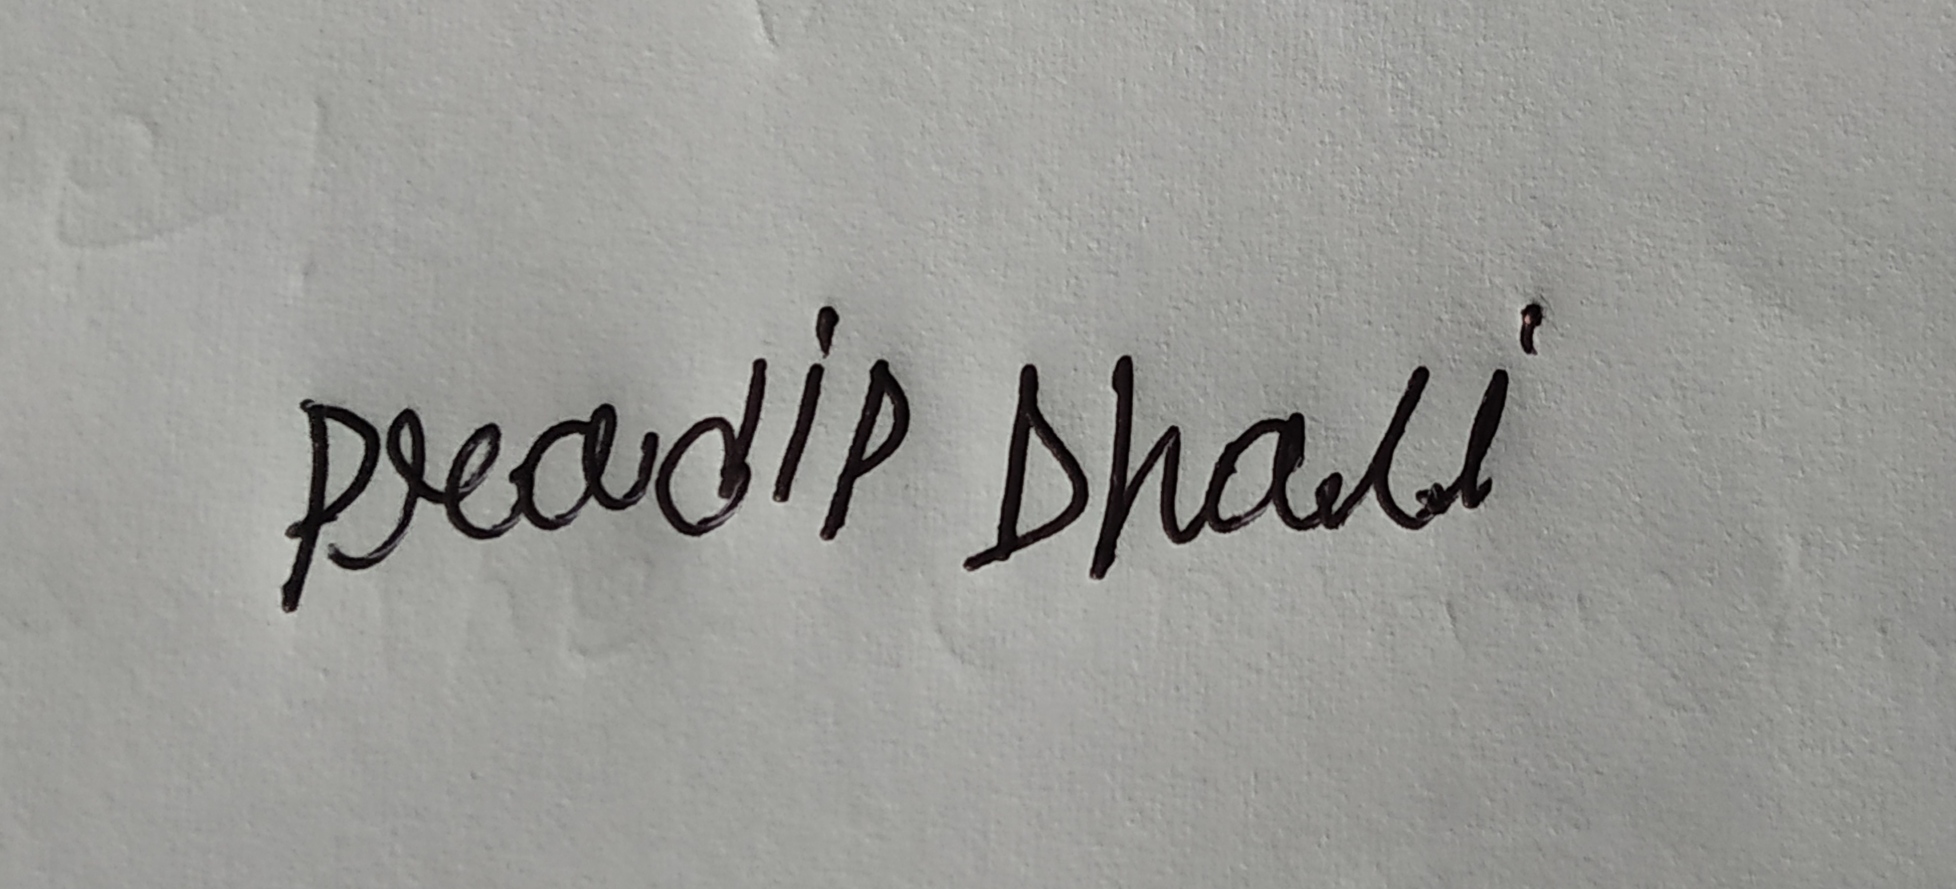 Pradip Dhali